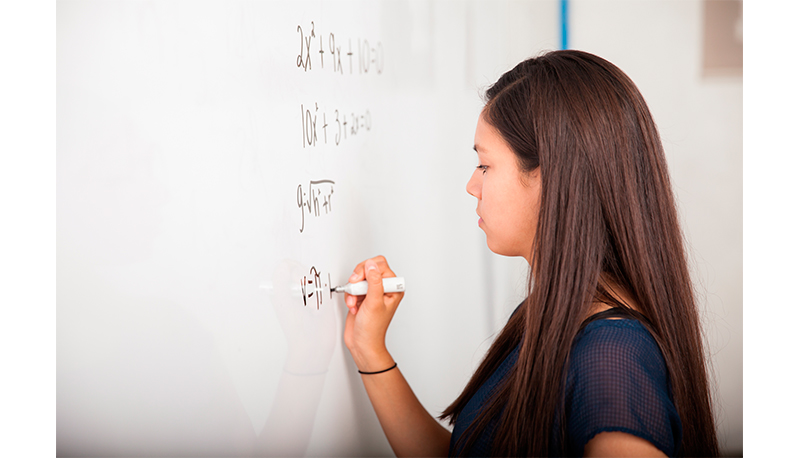 2x² + 9x + 10 = 0
10x² + 3 + 2x = 0
g = √h² + r²
v = π